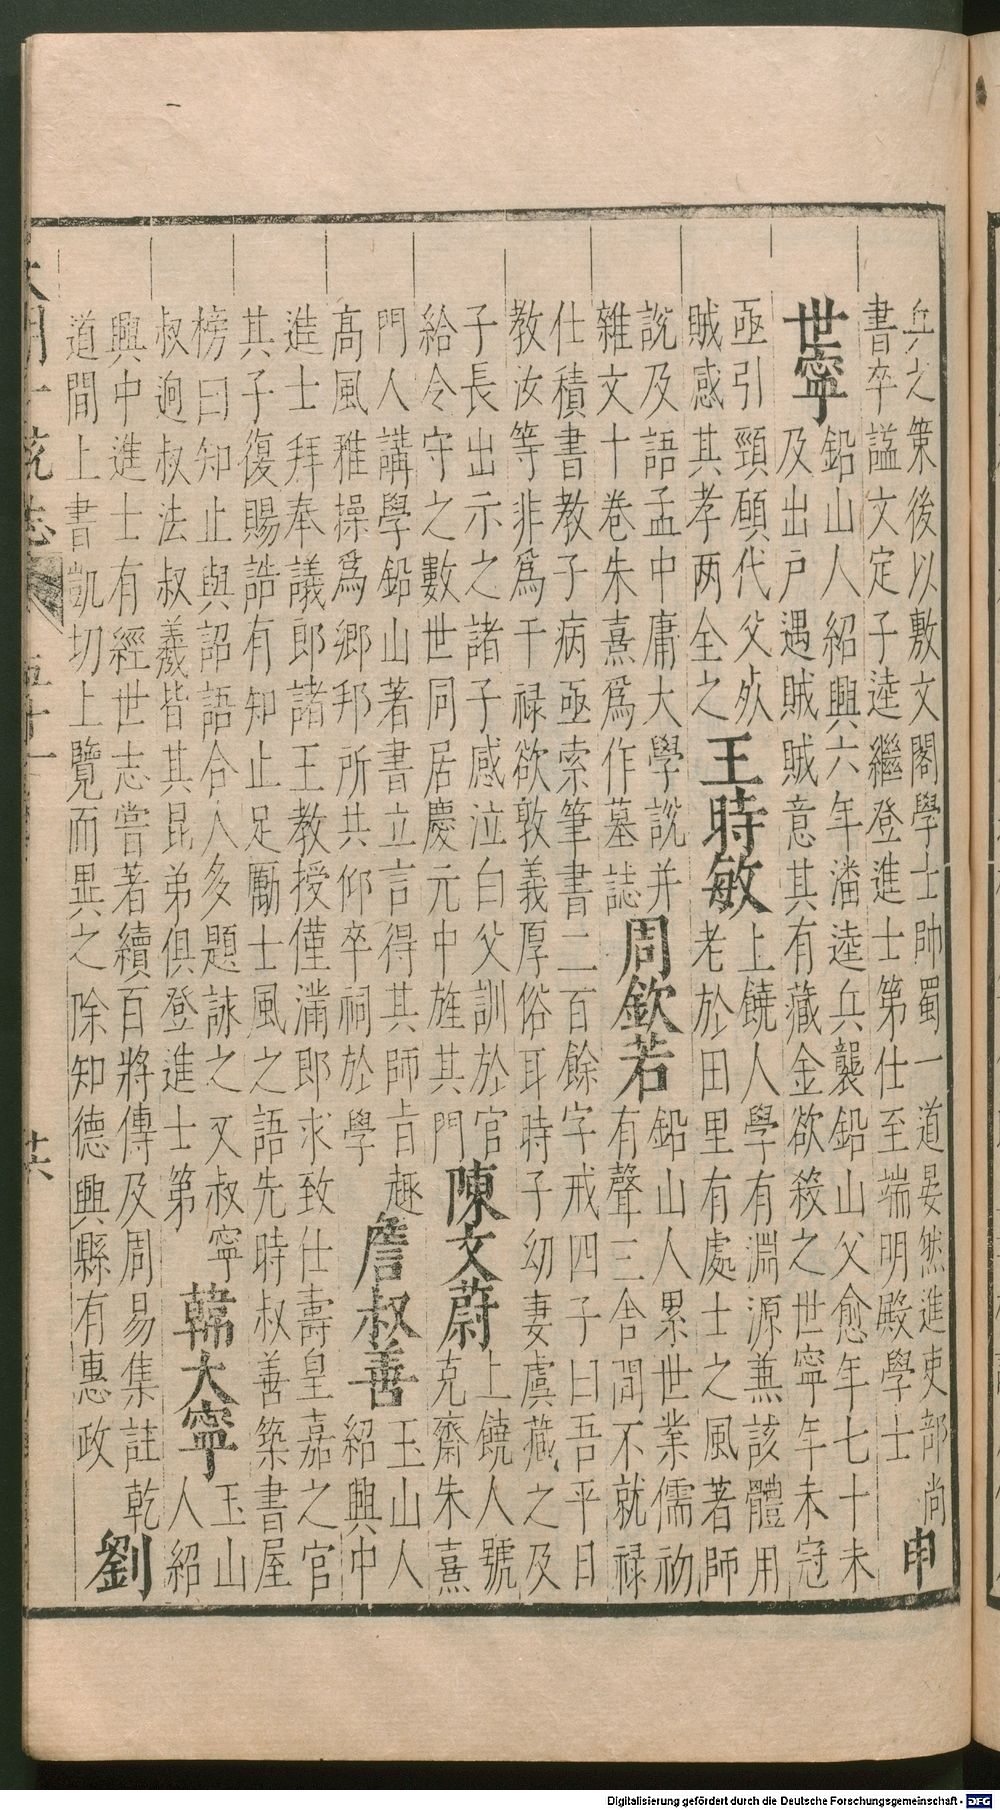 兵之策後以敷文閣學士帥蜀一道晏然進吏部尚
書卒謚文定子逵繼登進士第仕至端明殿學士 申
世寧 鉛山人紹興六年潘逵兵襲鉛山父愈年七十未
及出戶遇賊賊意其有藏金欲殺之世寧年未冠
亟引頸願代父死
賊感其孝两全之 王時敏 上饒人學有淵源兼該體用
老於田里有處士之風著師
說及語孟中庸大學說并
雜文十卷朱熹爲作墓誌 周欽若 鉛山人累世業儒初
有聲三舍間不就禄
仕積書教子病亟索筆書二百餘字戒四子曰吾平日
教汝等非爲干禄欲敦義厚俗耳時子幼妻虞藏之及
子長出示之諸子感泣白父訓於官
給令守之數世同居慶元中旌其門 陳文蔚 上饒人號
克齋朱熹
門人講學鉛山著書立言得其師旨趣
高風雅操爲鄉邦所共仰卒祠於學 詹叔善 玉山人
紹興中
進士拜奉議郎諸王教授僅滿郎求致仕壽皇嘉之官
其子復賜誥有知止足勵士風之語先時叔善築書屋
榜曰知止與詔語合人多題詠之又叔寧
叔逈叔法叔羲皆其昆弟俱登進士第 韓大寧 玉山
人紹
興中進士有經世志嘗著續百將傳及周易集註乾
道間上書凱切上覽而異之除知德興縣有惠政 劉
大明一統志 五十一
Digitalisierung gefördert durch die Deutsche Forschungsgemeinschaft - DFG